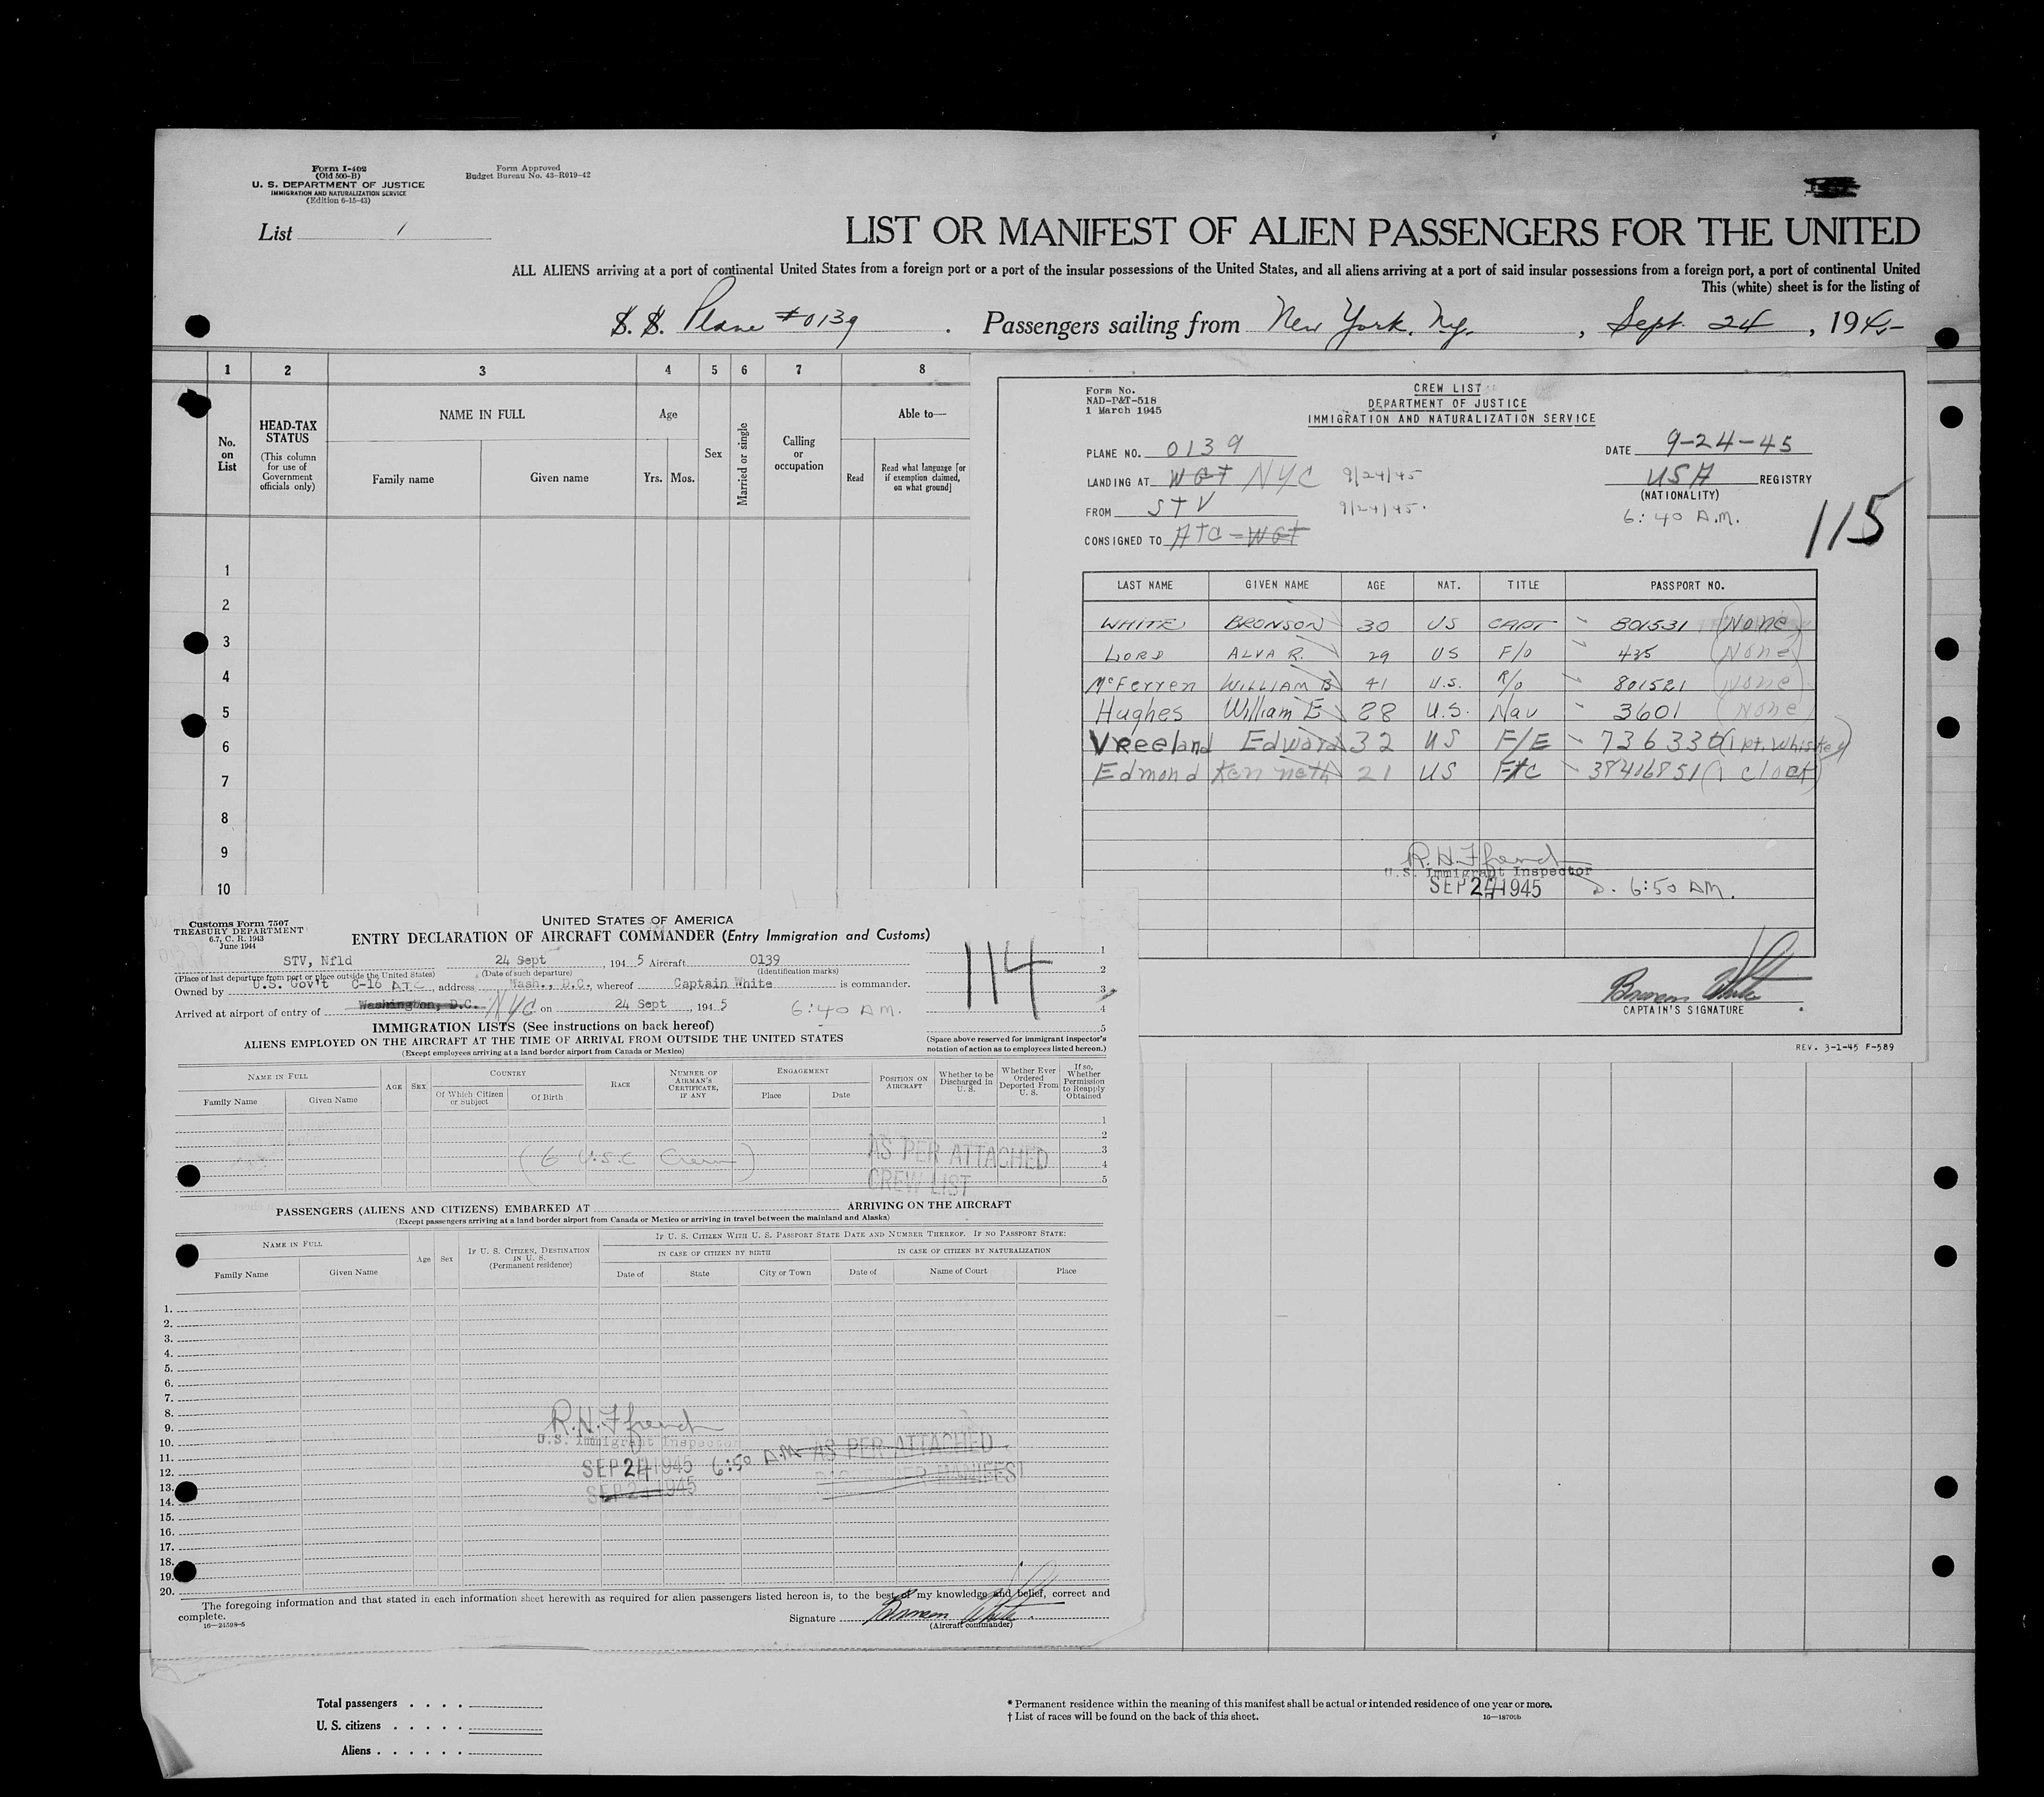 Form I-402
(Old 500-B)
U. S. DEPARTMENT OF JUSTICE
IMMIGRATION AND NATURALIZATION SERVICE
(Edition 6-15-43)
Form Approved
Budget Bureau No. 43-R019-42
List 1
LIST OR MANIFEST OF ALIEN PASSENGERS FOR THE UNITED
ALL ALIENS arriving at a port of continental United States from a foreign port or a port of the insular possessions of the United States, and all aliens arriving at a port of said insular possessions from a foreign port, a port of continental United
This (white) sheet is for the listing of
S. S. Plane #0139 . Passengers sailing from New York, Ny. , Sept. 24 , 194
1 2 3 4 5 6 7 8
No. on List
HEAD-TAX STATUS
(This column for use of Government officials only)
NAME IN FULL
Family name Given name
Age
Yrs. Mos.
Sex
Married or single
Calling or occupation
Able to—
Read
Read what language [or if exemption claimed, on what ground]
1
2
3
4
5
6
7
8
9
10
Form No.
NAD-P&T-518
1 March 1945
CREW LIST
DEPARTMENT OF JUSTICE
IMMIGRATION AND NATURALIZATION SERVICE
PLANE NO. 0139
DATE 9-24-45
LANDING AT WGT NYC 9/24/45
USA REGISTRY
(NATIONALITY)
FROM STV 9/24/45.
6:40 A.M.
115
CONSIGNED TO ATC - WGT
LAST NAME GIVEN NAME AGE NAT. TITLE PASSPORT NO.
WHITE BRONSON 30 US CAPT 801531 (None)
LORD ALVA R. 29 US F/O 435 (None)
McFerren WILLIAM B 41 U.S. R/O 801521 (None)
Hughes William E 28 U.S. Nav 3601 (None)
Vreeland Edward 32 US F/E 73633 (1 pt. Whiskey)
Edmond Kenneth 21 US FTC 38406851 (1 clock)
U.S. Immigrant Inspector
SEP 24 1945 D. 6:50 AM.
Bronson White
CAPTAIN'S SIGNATURE
REV. 3-1-45 F-589
Customs Form 7507
TREASURY DEPARTMENT
6.7, C. R. 1943
June 1944
UNITED STATES OF AMERICA
ENTRY DECLARATION OF AIRCRAFT COMMANDER (Entry Immigration and Customs)
STV, Nfld 24 Sept , 194 5 Aircraft 0139
(Place of last departure from port or place outside the United States) (Date of such departure) (Identification marks)
Owned by U.S. Gov't C-16 ATC , address Wash., D.C., whereof Captain White is commander.
Arrived at airport of entry of Washington, D.C. NYC on 24 Sept , 194 5 6:40 AM.
114
1
2
3
4
5
(Space above reserved for immigrant inspector's notation of action as to employees listed hereon.)
IMMIGRATION LISTS (See instructions on back hereof)
ALIENS EMPLOYED ON THE AIRCRAFT AT THE TIME OF ARRIVAL FROM OUTSIDE THE UNITED STATES
(Except employees arriving at a land border airport from Canada or Mexico)
NAME IN FULL
Family Name Given Name
AGE SEX
COUNTRY
Of Which Citizen or Subject Of Birth
RACE
NUMBER OF AIRMAN'S CERTIFICATE, IF ANY
ENGAGEMENT
Place Date
POSITION ON AIRCRAFT
Whether to be Discharged in U. S.
Whether Ever Ordered Deported From U. S.
If so, Whether Permission to Reapply Obtained
1
2
3
4
5
(6 U.S.C Crew)
AS PER ATTACHED
CREW LIST
PASSENGERS (ALIENS AND CITIZENS) EMBARKED AT ARRIVING ON THE AIRCRAFT
(Except passengers arriving at a land border airport from Canada or Mexico or arriving in travel between the mainland and Alaska)
NAME IN FULL
Family Name Given Name
Age Sex
IF U. S. CITIZEN, DESTINATION IN U. S.
(Permanent residence)
IF U. S. CITIZEN WITH U. S. PASSPORT STATE DATE AND NUMBER THEREOF. IF NO PASSPORT STATE:
IN CASE OF CITIZEN BY BIRTH IN CASE OF CITIZEN BY NATURALIZATION
Date of State City or Town Date of Name of Court Place
1.
2.
3.
4.
5.
6.
7.
8.
9.
10.
11.
12.
13.
14.
15.
16.
17.
18.
19.
20.
U.S. Immigrant Inspector
SEP 24 1945 6:50 A.M. AS PER ATTACHED
PASSENGER MANIFEST
SEP 24 1945
The foregoing information and that stated in each information sheet herewith as required for alien passengers listed hereon is, to the best of my knowledge and belief, correct and
complete.
16—24598-5
Signature Bronson White
(Aircraft commander)
Total passengers . . . .
U. S. citizens . . . . .
Aliens . . . . . .
* Permanent residence within the meaning of this manifest shall be actual or intended residence of one year or more.
† List of races will be found on the back of this sheet.
16—18709b